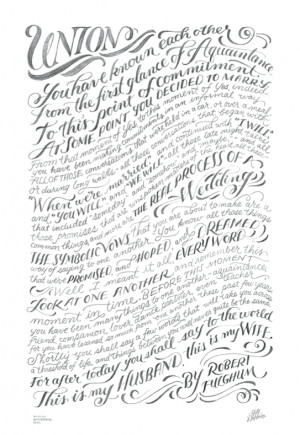 UNION
You have known each other
from the first glance of Acquaintance
To this point of commitment.
AT SOME POINT, YOU DECIDED TO MARRY.
From that moment of yes, to this moment of yes, indeed,
you have been making commitments in an informal way.
ALL OF THOSE conversations that were held in a car, or over a meal,
or during long walks – all those conversations that began with,
"When we're married", and continued with "I will"
and "you will" and "we will" – all those late night talks
that included "someday" and "somehow" and "maybe" – and all
those promises that are unspoken matters of the heart. All these
common things, and more, are THE REAL PROCESS OF A
Wedding.
THE SYMBOLIC VOWS that you are about to make are a
way of saying to one another, "You know all those things
that we've PROMISED, and HOPED, and DREAMED –
well, I meant it all, EVERY WORD."
LOOK AT ONE ANOTHER and remember this
moment in time. BEFORE THIS MOMENT
you have been many things to one another – acquaintance,
friend, companion, lover, dancing partner, even teacher,
for you have learned much from one another these past few years.
Shortly you shall say a few words that will take you across
a threshold of life, and things between you will never quite be the same.
For after today you shall say to the world –
This is my HUSBAND. this is my WIFE.
By ROBERT
FULGHUM